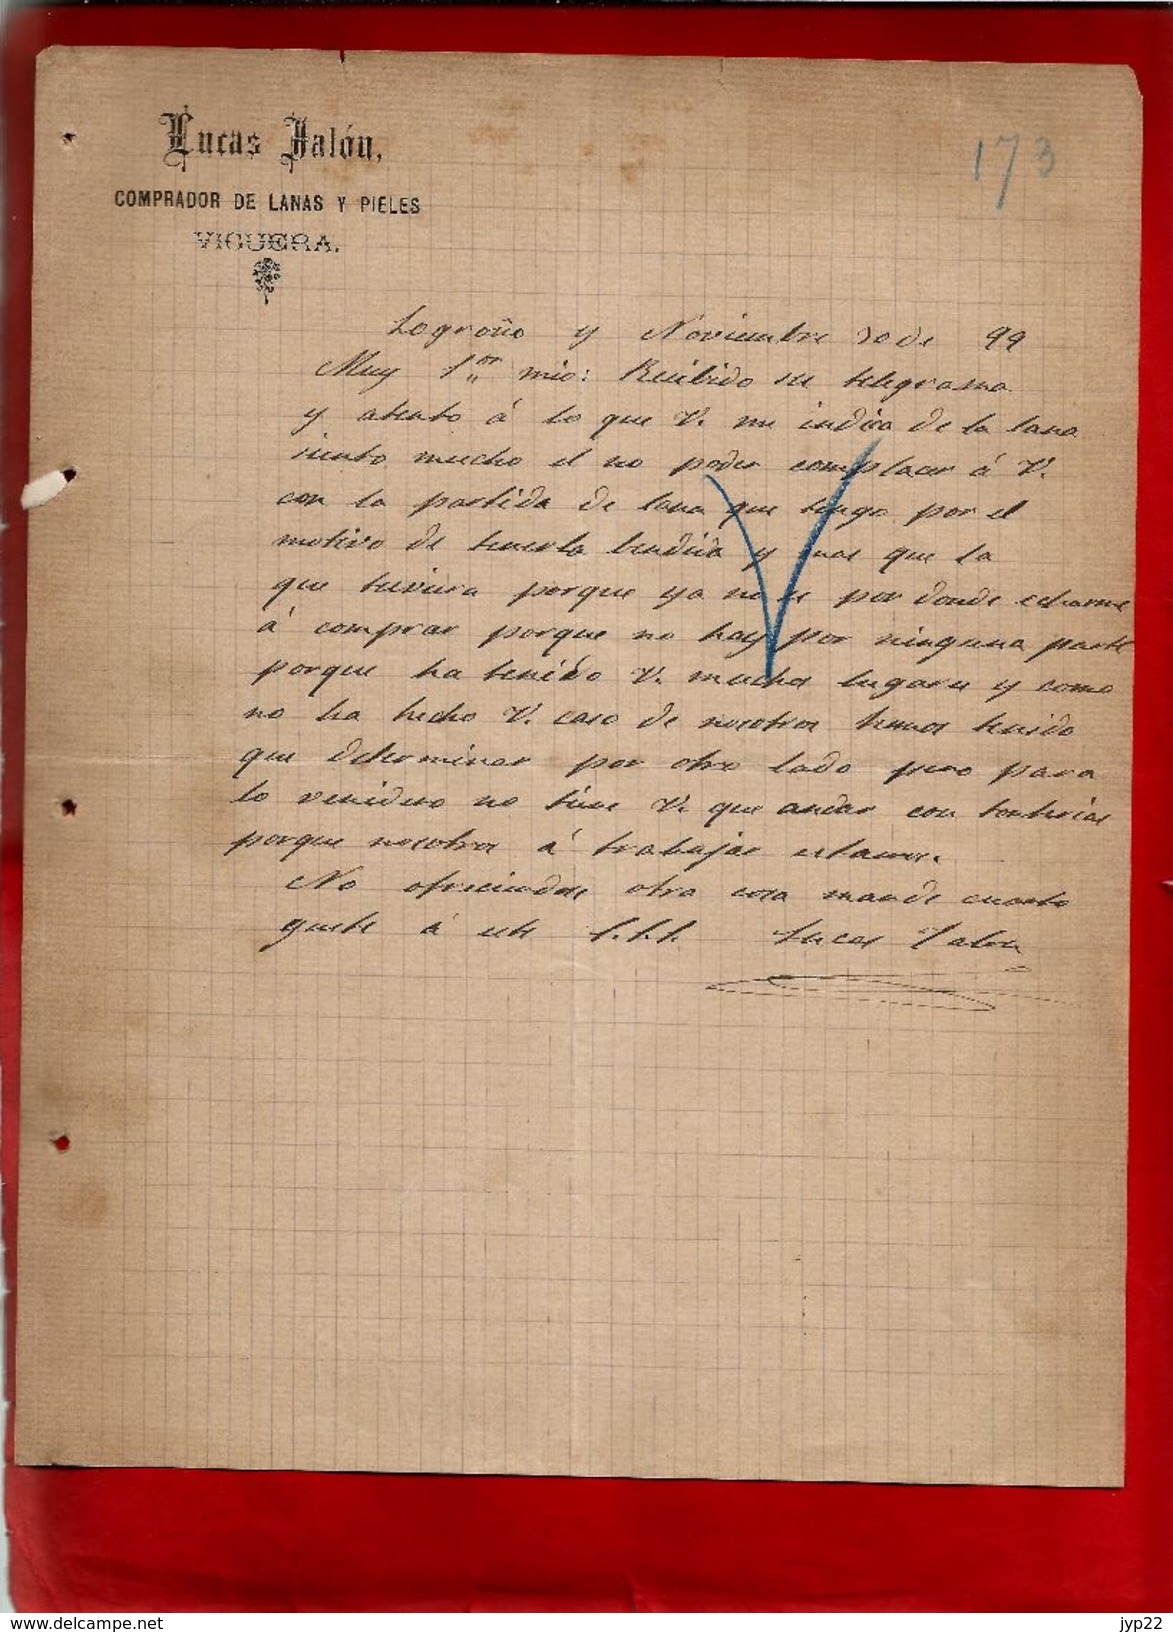 Lucas Jalón,
COMPRADOR DE LANAS Y PIELES
VIGUERA.
173
Logroño y Noviembre 30 de 99
Muy Sor mio: Recibido su telegrama
y atento á lo que V. me indica de la lana
siento mucho el no poder complacer á V.
con la partida de lana que tengo por el
motivo de tenerla bendida y mas que la
que tuviera porque ya no se por donde echarme
á comprar porque no hay por ninguna parte
porque ha tenido V. mucha lugares y como
no ha hecho V. caso de nosotros hemos tenido
que determinar por otro lado pero para
lo venidero no tiene V. que andar con tonterias
porque nosotros á trabajar estamos.
No ofreciendose otra cosa mande cuanto
guste á este S.S.S. Lucas Jalon
www.delcampe.net
jyp22